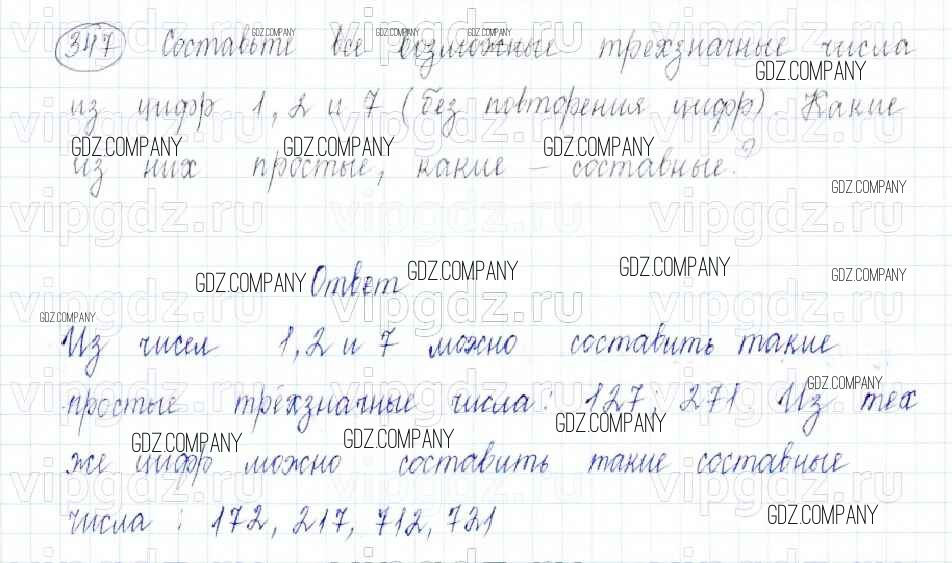 347 Составьте все возможные трёхзначные числа
GDZ.COMPANY
из цифр 1, 2 и 7 (без повторения цифр). Какие
GDZ.COMPANY GDZ.COMPANY GDZ.COMPANY
из них простые, какие – составные?
GDZ.COMPANY
vipgdz.ru vipgdz.ru vipgdz.ru
GDZ.COMPANY Ответ GDZ.COMPANY GDZ.COMPANY GDZ.COMPANY
vipgdz.ru vipgdz.ru vipgdz.ru
GDZ.COMPANY
Из чисел 1, 2 и 7 можно составить такие
GDZ.COMPANY
простые трёхзначные числа: 127, 271. Из тех
GDZ.COMPANY GDZ.COMPANY GDZ.COMPANY
же цифр можно составить такие составные
vipgdz.ru vipgdz.ru vipgdz.ru
числа: 172, 217, 712, 721
GDZ.COMPANY